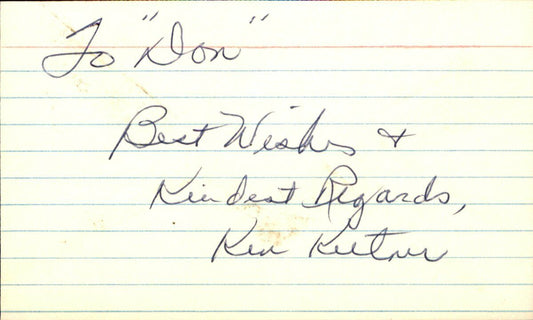 To "Don"
Best Wishes &
Kindest Regards,
Ken Keltner